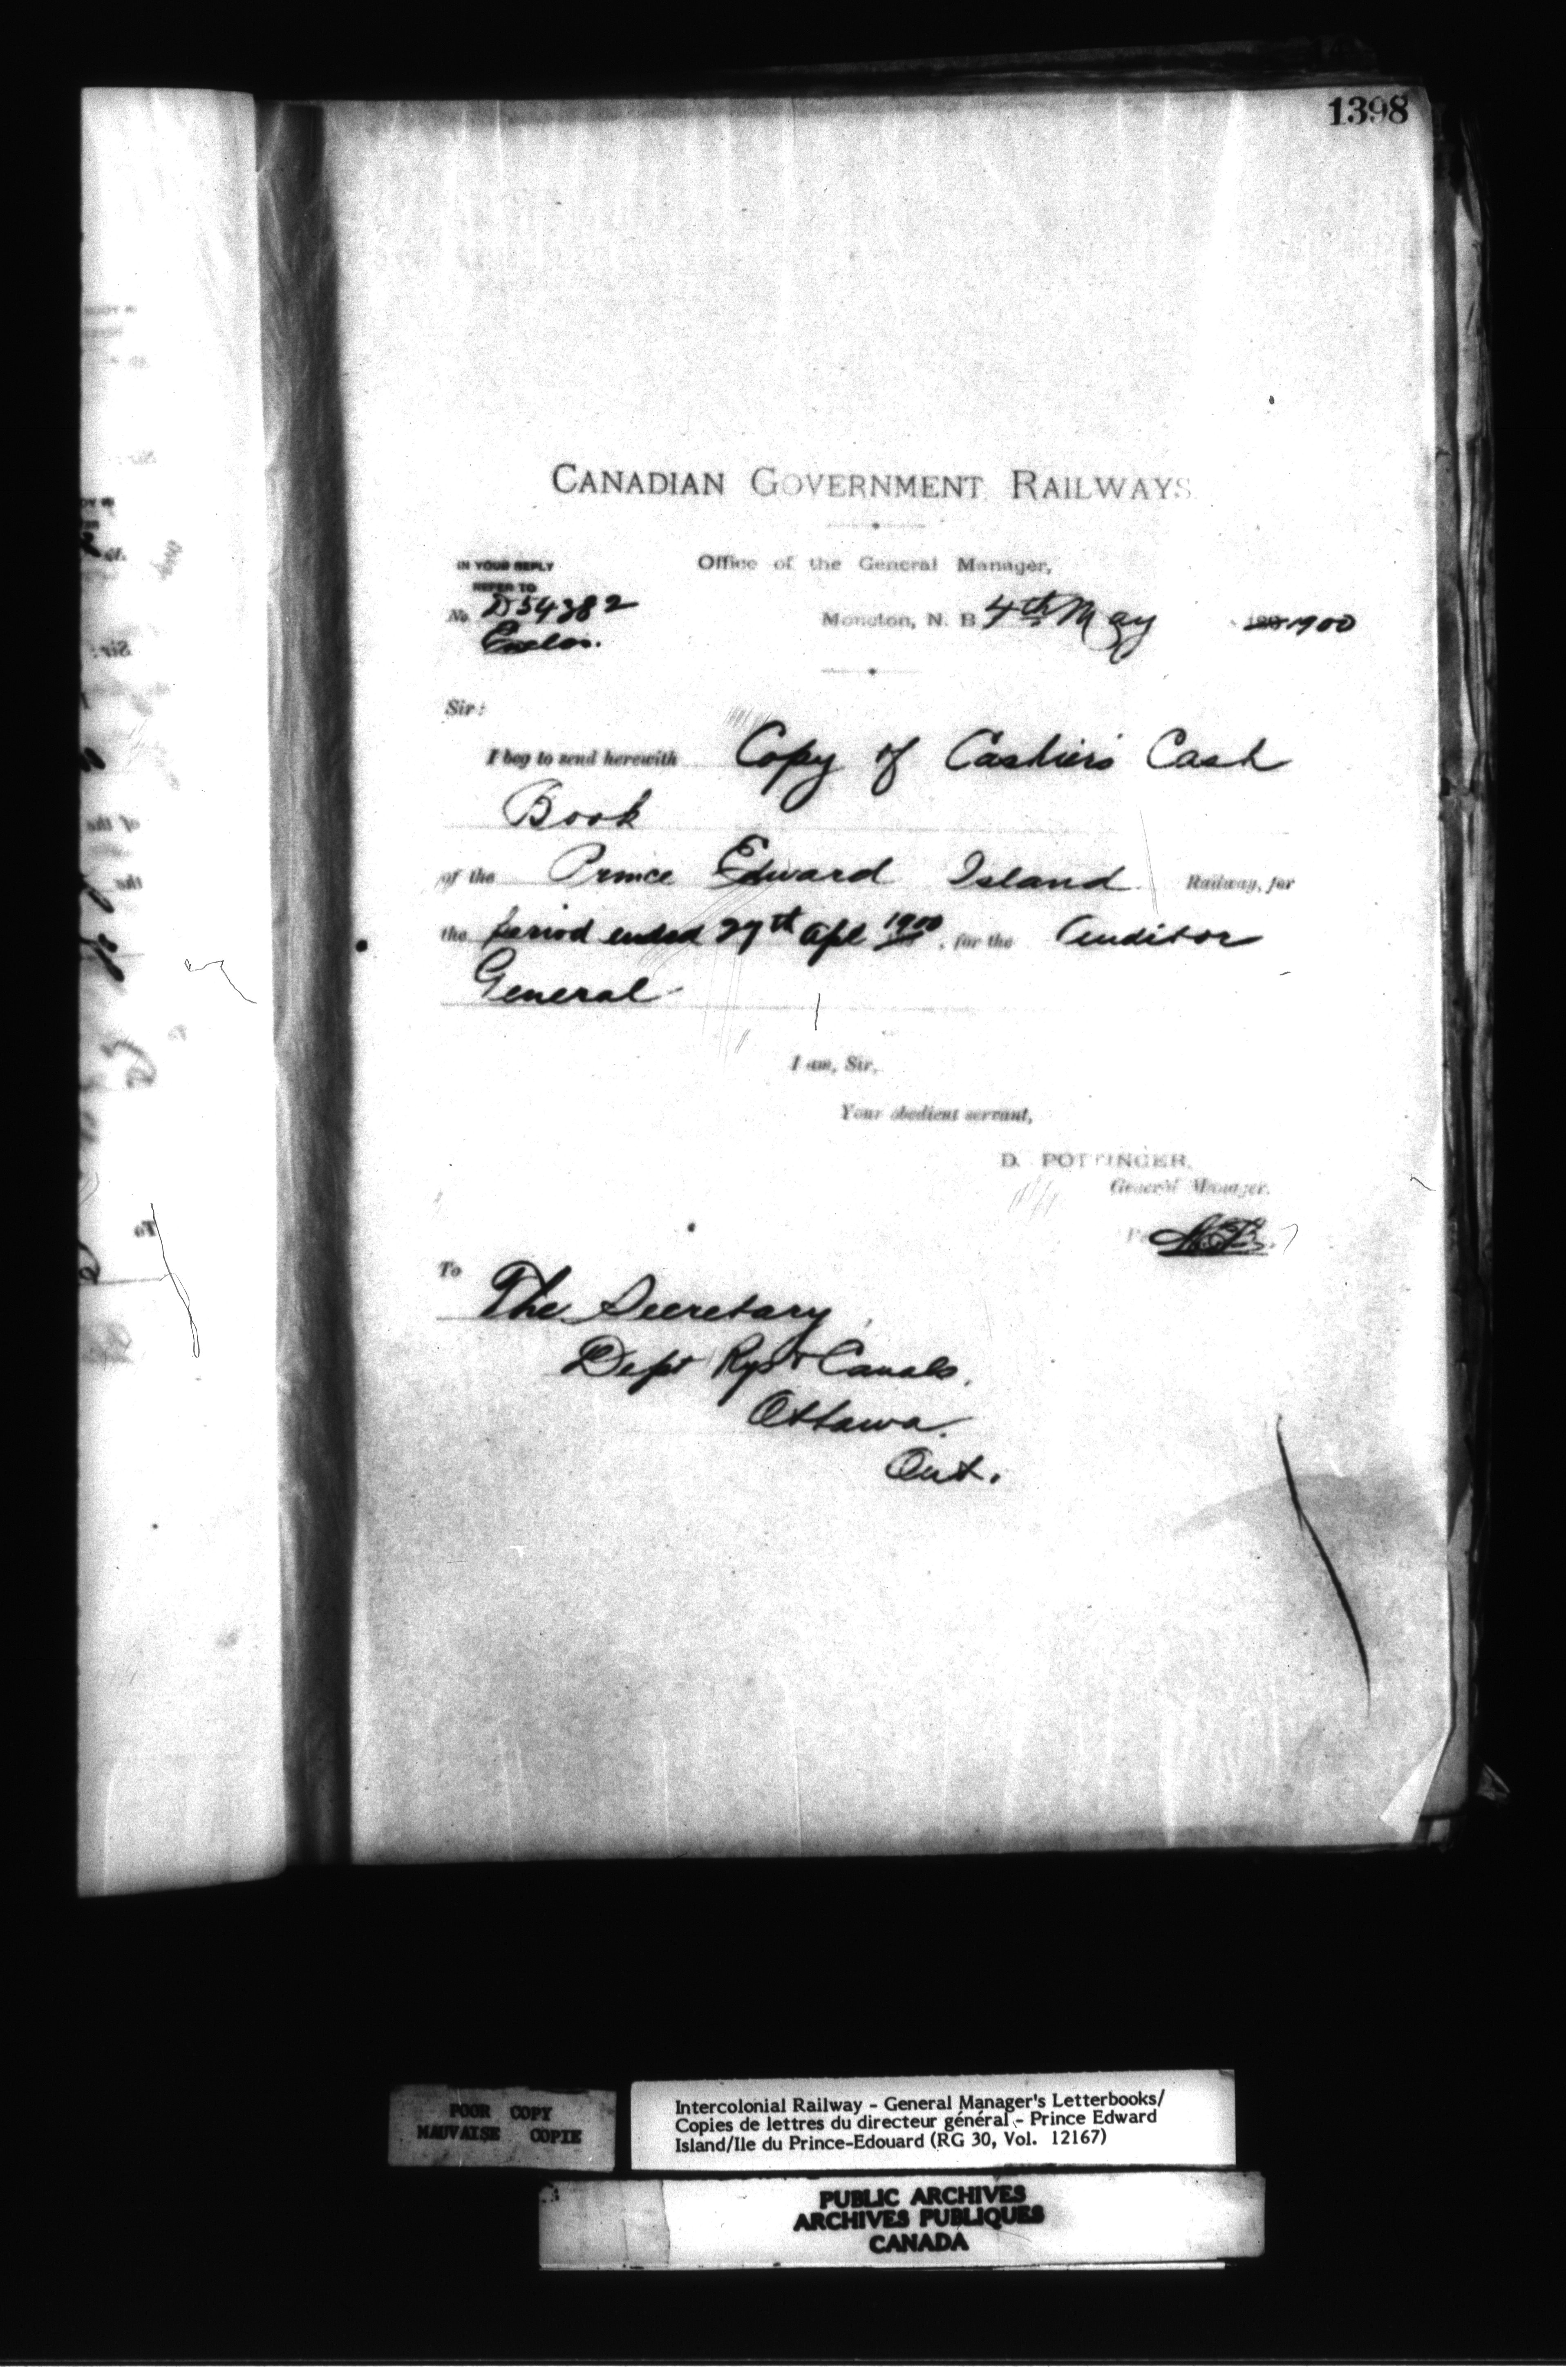 1398
CANADIAN GOVERNMENT RAILWAYS.
IN YOUR REPLY
REFER TO
Office of the General Manager,
No. D54382
Enclos.
Moncton, N. B. 4th May 1900
Sir:
I beg to send herewith Copy of Cashier's Cash
Book
of the Prince Edward Island Railway, for
the period ended 27th Apl 1900, for the Auditor
General
I am, Sir,
Your obedient servant,
D. POTTINGER,
General Manager.
To
The Secretary,
Dept Rys & Canals,
Ottawa.
Ont.
POOR COPY
MAUVAISE COPIE
Intercolonial Railway - General Manager's Letterbooks/
Copies de lettres du directeur général - Prince Edward
Island/Ile du Prince-Edouard (RG 30, Vol. 12167)
PUBLIC ARCHIVES
ARCHIVES PUBLIQUES
CANADA